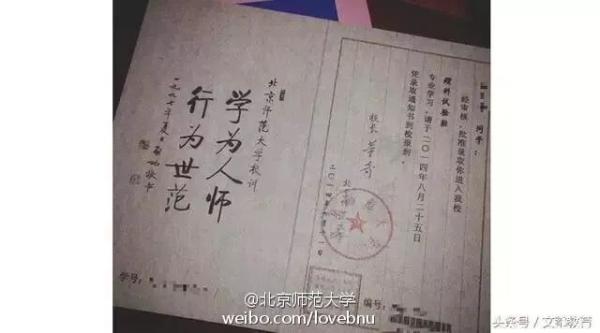 同学：
经审核，批准录取你进入我校
理科试验班
专业学习，请于二〇一四年八月二十五日
凭录取通知书到校报到。
校长 董奇
北京师范大学校训
学为人师
行为世范
一九九七年夏日 启功敬书
学号：
编号：
@北京师范大学
weibo.com/lovebnu
头条号 / 文都教育